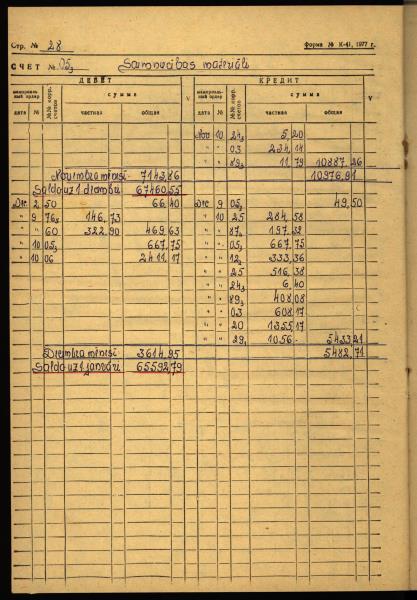 Стр. № 28
Форма № К-41, 1977 г.
СЧЕТ № 05₃ Saimniecības materiāli
ДЕБЕТ КРЕДИТ
мемориаль-ный ордер №№ корр. счетов сумма V мемориаль-ный ордер №№ корр. счетов сумма V
дата № частная общая дата № частная общая
Nov 10 24₃ 5,20
" " 03 234,14
" " 89₃ 11,79 10887,26
Novembra mēnesī 7143,86 10976,91
Saldo uz 1 decembri 67460,55
Dec 2 50 66,40 Dec 9 05₃ 49,50
" 9 76₅ 146,73 " 10 25 284,58
" " 60 322,90 469,63 " " 87₂ 197,32
" 10 05₃ 667,75 " " 05₃ 667,75
" 10 06 2411,17 " " 12₃ 333,36
" " 25 516,38
" " 24₃ 6,40
" " 89₃ 408,08
" " 03 608,17
" " 20 1355,17
" " 29₁ 1056- 5433,21
Decembra mēnesī 3614,95 5482,71
Saldo uz 1 janvāri 65592,79